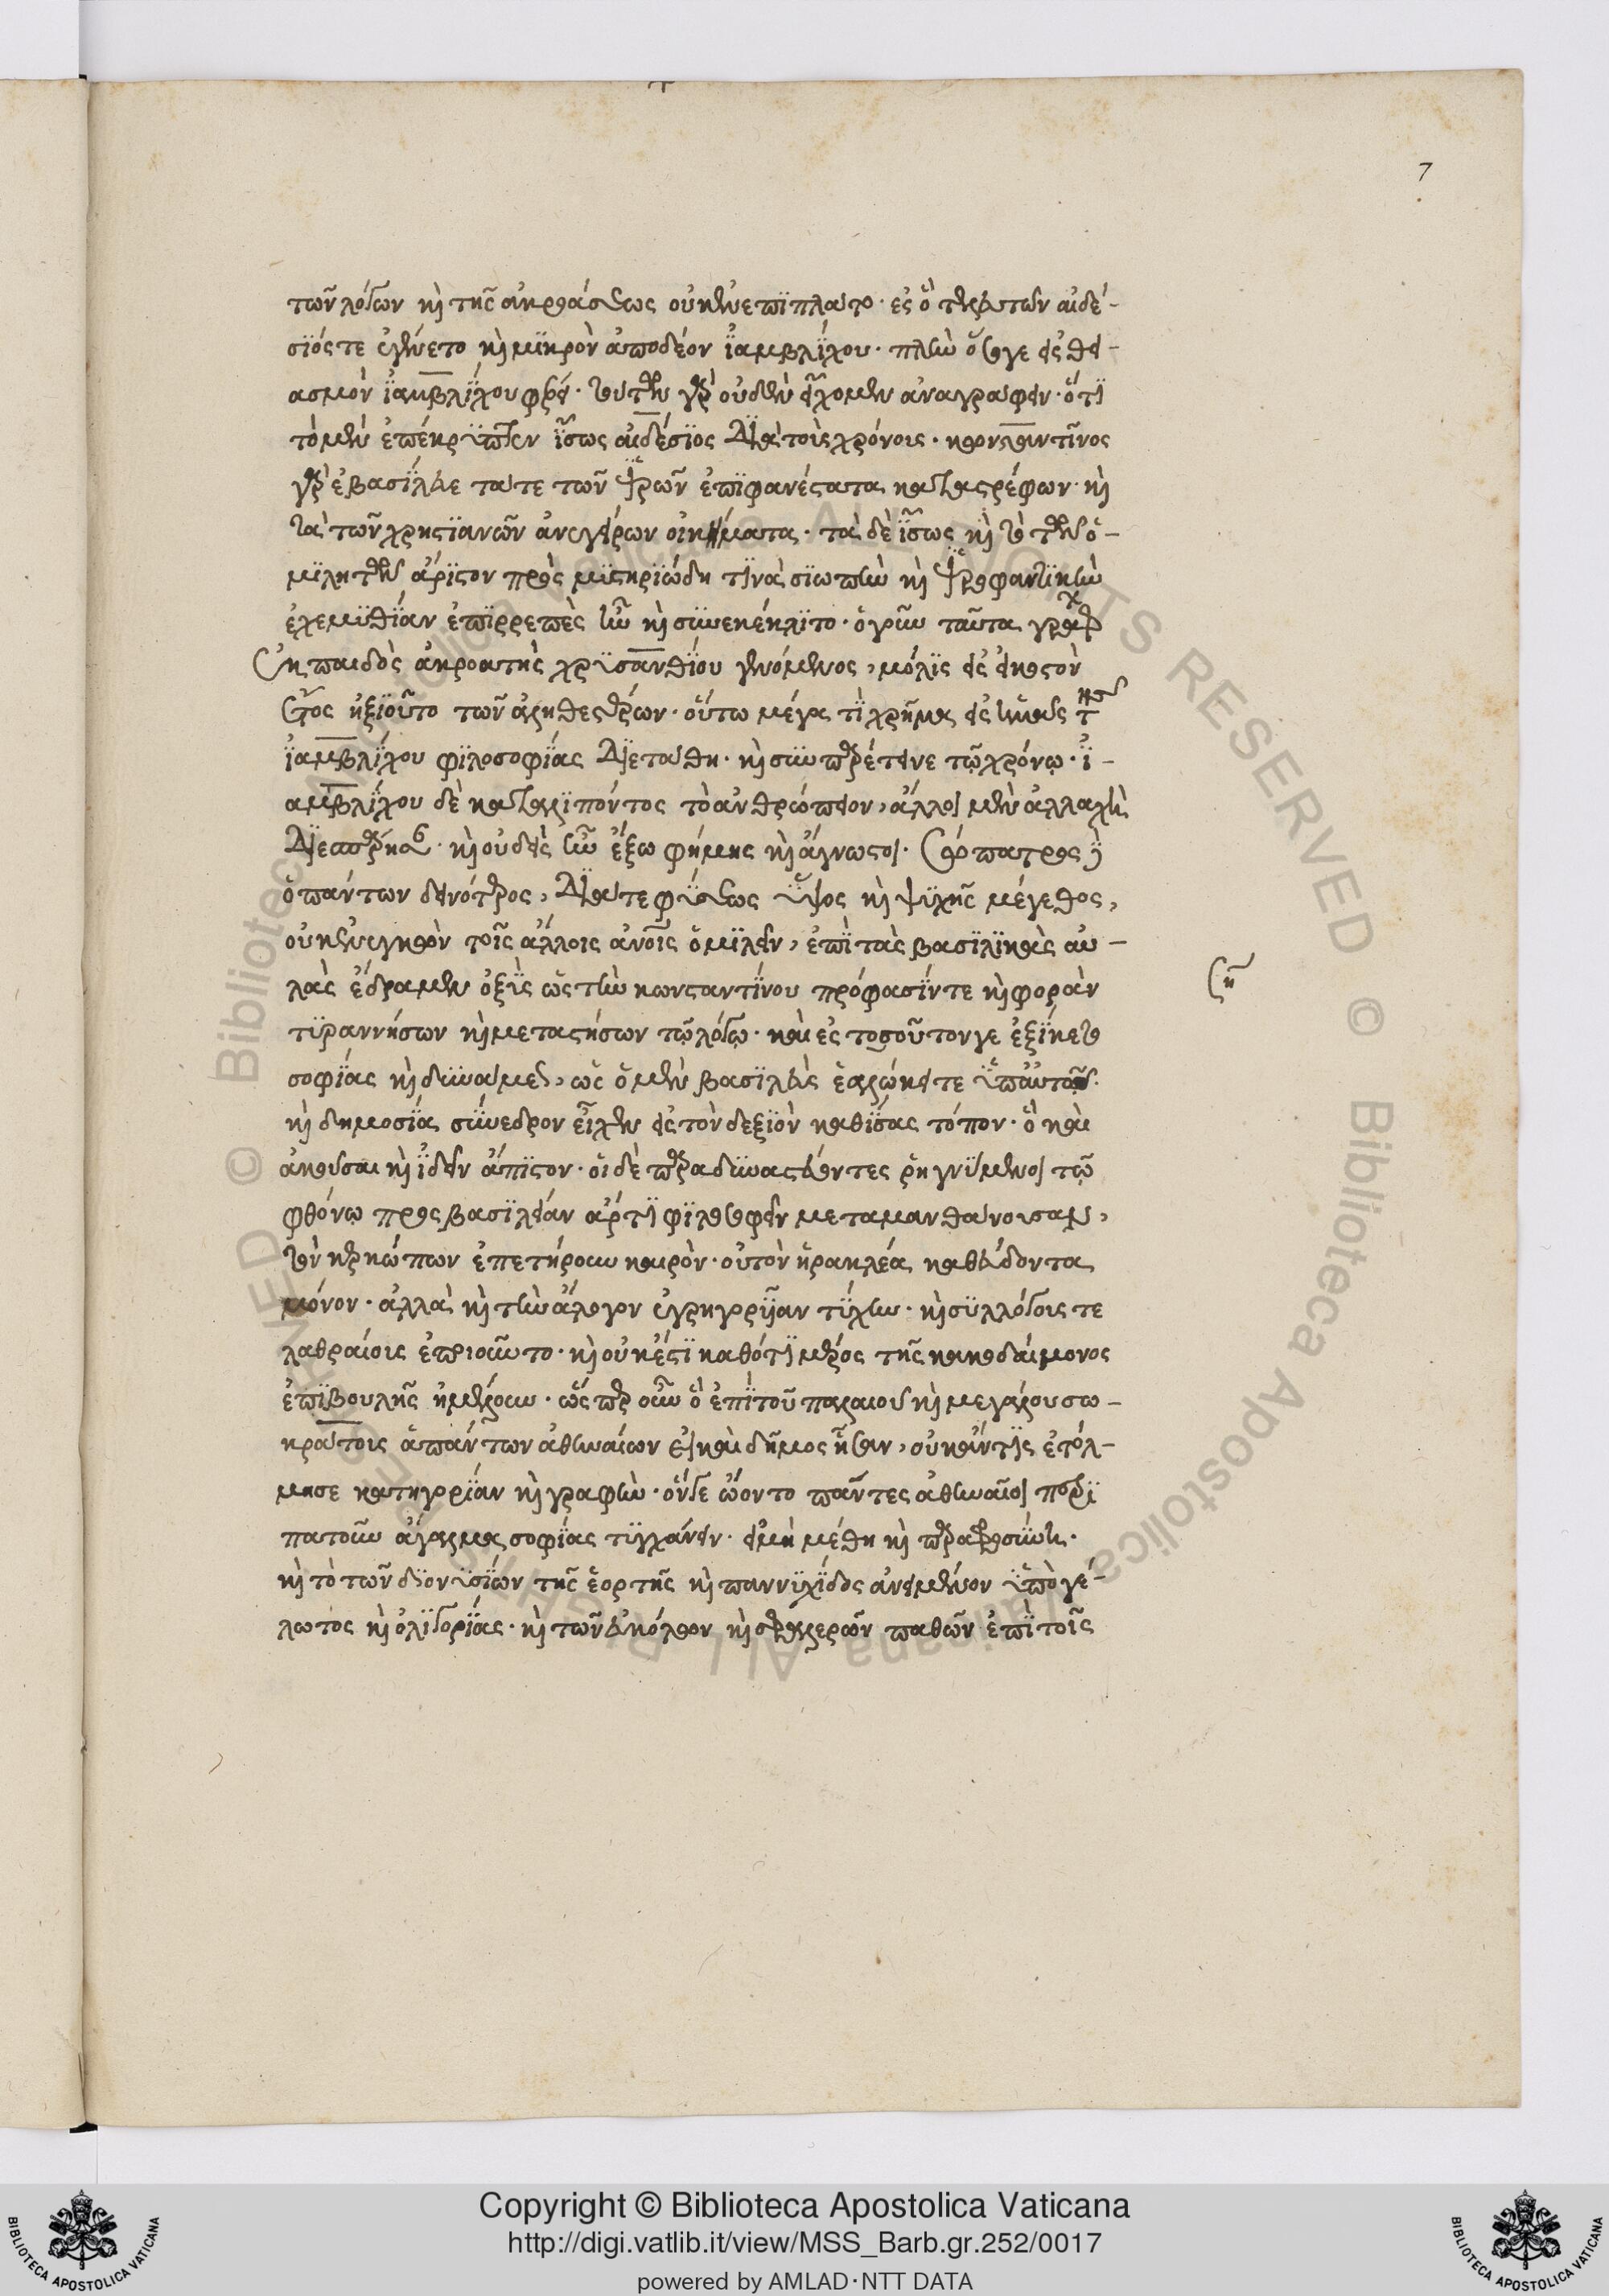 7
τῶν λόγων κὶ τῆς ἀκροάσεως οὐκ ἐνεπίπλατο· ἐς ὃ τελευτῶν αἰδέ-
σιός τε ἐγένετο κὶ μικρὸν ἀποδέον ἰαμβλίχου· πλὴν ὅσα γε εἰς θει-
ασμὸν ἰαμβλίχου φέρει· τούτων γὰρ οὐδὲν εἴχομεν ἀναγράφειν· ὅτι
τὸ μὲν ἐπέκρυπτεν ἴσως αἰδέσιος διὰ τοὺς χρόνους· κονσταντῖνος
γὰρ ἐβασίλευε τά τε τῶν ἱερῶν ἐπιφανέστατα καταστρέφων κὶ
τὰ τῶν χρηστιανῶν ἀνεγείρων οἰκήματα· τὰ δὲ ἴσως κὶ τὸ τῶν ὁ-
μιλητῶν ἄριστον πρὸς μυστηριώδη τινὰ σιωπὴν κὶ ἱεροφαντικὴν
ἐχεμυθίαν ἐπιρρεπὲς ἦν κὶ συνεκέκλιτο· ὁ γοῦν ταῦτα γράφ
ἐκ παιδὸς ἀκροατὴς χρυσανθίου γενόμενος, μόλις εἰς εἰκοστὸν
ἔτος ἠξιοῦτο τῶν ἀληθεστέρων· οὕτω μέγα τὶ χρῆμα εἰς ἡμᾶς τ
ἰαμβλίχου φιλοσοφίας διετάθη· κὶ συμπαρέτεινε τῷ χρόνῳ· ἰ-
αμβλίχου δὲ καταλιπόντος τὸ ἀνθρώπειον, ἄλλοι μὲν ἀλλαχῆ
διεσπάρησαν· κὶ οὐδεὶς ἦν ἔξω φήμης κὶ ἄγνωστος. σώπατρος
ὁ πάντων δεινότερος, διά τε φύσεως ὕψος κὶ ψυχῆς μέγεθος,
οὐκ ἐνεγκὼν τοῖς ἄλλοις ἀνοις ὁμιλεῖν, ἐπὶ τὰς βασιλικὰς αὐ-
λὰς ἔδραμεν ὀξὺς ὡς τὴν κωνσταντίνου πρόφασίν τε κὶ φορὰν
τυραννήσων κὶ μεταστήσων τῷ λόγῳ· καὶ ἐς τοσοῦτον γε ἐξίκετο
σοφίας κὶ δυνάμεως, ὡς ὁ μὲν βασιλεὺς ἑαλώκει τε ὑπ' αὐτῷ·
κὶ δημοσία σύνεδρον εἶχεν εἰς τὸν δεξιὸν καθίσας τόπον· ὃ καὶ
ἀκοῦσαι κὶ ἰδεῖν ἄπιστον· οἱ δὲ παραδυναστεύοντες ῥηγνύμενοι τῷ
φθόνῳ πρὸς βασιλείαν ἄρτι φιλοσοφεῖν μεταμανθάνουσαν,
τὸν κερκώπων ἐπετήρουν καιρὸν· οὐ τὸν ἡρακλέα καθεύδοντα
μόνον· ἀλλὰ κὶ τὴν ἄλογον ἐγρηγορυῖαν τύχην· κὶ συλλόγοις τε
λαθραίοις ἐποιοῦντο· κὶ οὐκ ἔστι καθότι μέρος τῆς κακοδαίμονος
ἐπιβουλῆς ἠμέλουν· ὥσπερ οὖν ὃ ἐπὶ τοῦ παλαιοῦ κὶ μεγάλου σω-
κράτους ἁπάντων ἀθηναίων εἰ καὶ δῆμος ἦσαν, οὐκ ἄν τις ἐτόλ-
μησε κατηγορίαν κὶ γραφὴν· ὅν γε ᾤοντο πάντες ἀθηναῖοι περι
πατοῦν ἄγαλμα σοφίας τυγχάνειν· εἰ μὴ μέθη κὶ παραφροσύνη·
κὶ τὸ τῶν διονυσίων τῆς ἑορτῆς κὶ παννυχίδος ἀνειμένον ὑπὸ γέ-
λωτος κὶ ὀλιγορίας· κὶ τῶν εὐκόλων κὶ σφαλερῶν παθῶν ἐπὶ τοῖς
Copyright © Biblioteca Apostolica Vaticana
http://digi.vatlib.it/view/MSS_Barb.gr.252/0017
powered by AMLAD·NTT DATA
BIBLIOTECA APOSTOLICA VATICANA
BIBLIOTECA APOSTOLICA VATICANA